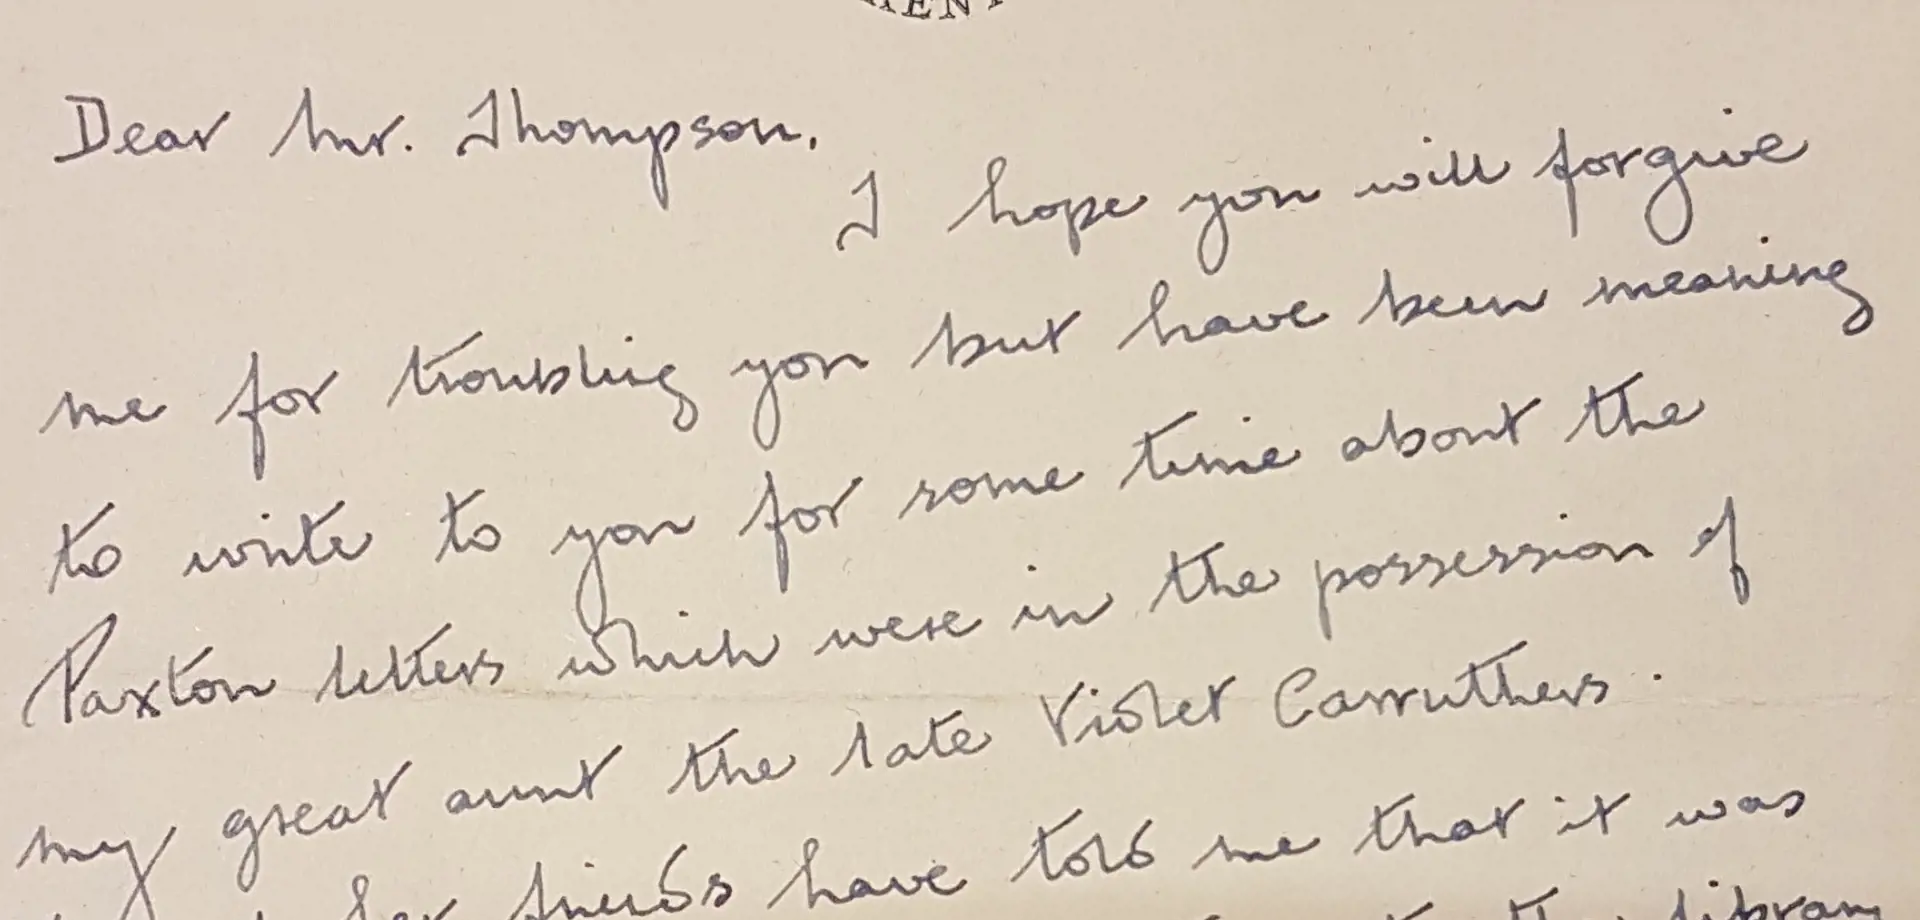 MENT
Dear Mr. Thompson,
I hope you will forgive
me for troubling you but have been meaning
to write to you for some time about the
Paxton letters which were in the possession of
my great aunt the late Violet Carruthers.
her friends have told me that it was
to the library